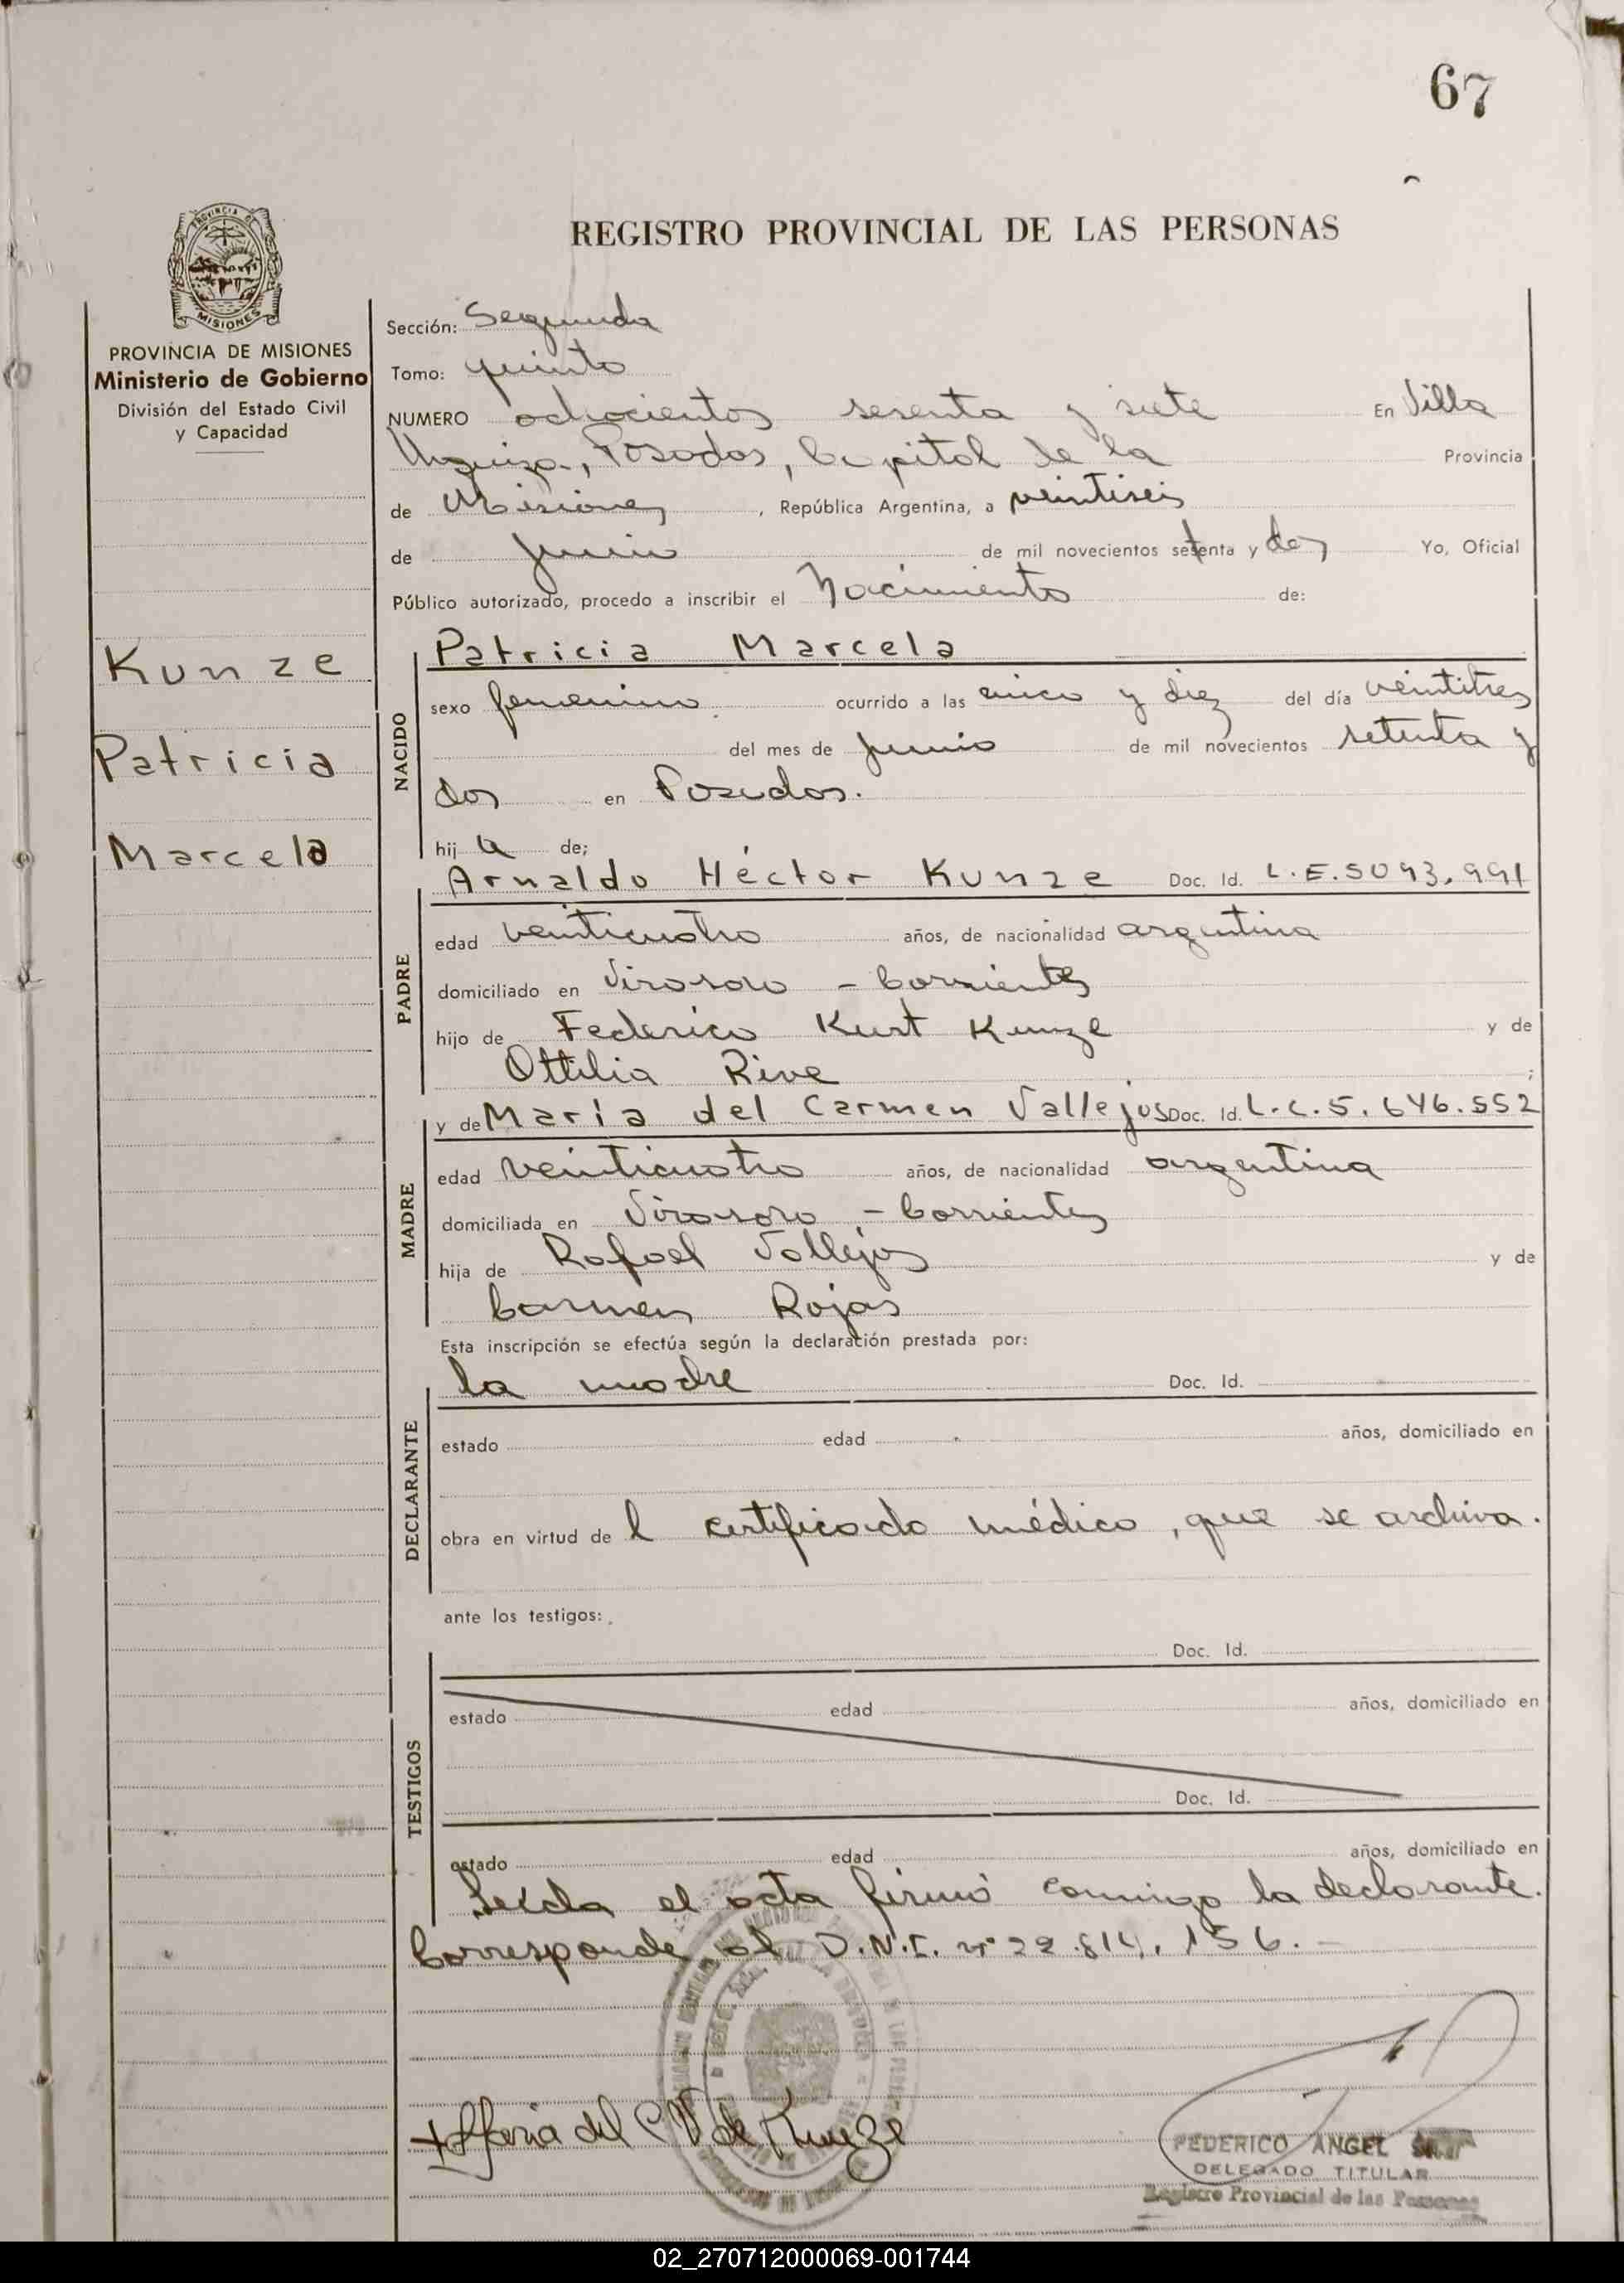 67
PROVINCIA DE
MISIONES
REGISTRO PROVINCIAL DE LAS PERSONAS
PROVINCIA DE MISIONES
Ministerio de Gobierno
División del Estado Civil
y Capacidad
Kunze
Patricia
Marcela
Sección: Segunda
Tomo: quinto
NUMERO ochocientos sesenta y siete En Villa
Urquiza, Posadas, Capital de la Provincia
de Misiones, República Argentina, a veintiseis
de junio de mil novecientos setenta y dos Yo, Oficial
Público autorizado, procedo a inscribir el Nacimiento de:
NACIDO
Patricia Marcela
sexo femenino ocurrido a las cinco y diez del día veintitres
del mes de junio de mil novecientos setenta y
dos en Posadas.
hij a de;
PADRE
Arnaldo Héctor Kunze Doc. Id. L.E.5093.991
edad veinticuatro años, de nacionalidad argentina
domiciliado en Virasoro - Corrientes
hijo de Federico Kurt Kunze y de
Ottilia Rive ;
MADRE
y de María del Carmen Vallejos Doc. Id. L.C.5.646.552
edad veinticuatro años, de nacionalidad argentina
domiciliada en Virasoro - Corrientes
hija de Rafael Vallejos y de
Carmen Rojas
Esta inscripción se efectúa según la declaración prestada por:
DECLARANTE
la madre Doc. Id.
estado edad años, domiciliado en
obra en virtud de l certificado médico, que se archiva.
ante los testigos:
TESTIGOS
Doc. Id.
estado edad años, domiciliado en
Doc. Id.
estado edad años, domiciliado en
Leída el acta firmó conmigo la declarante.
Corresponde al D.N.I. nº 22.814.156.-
María del C V de Kunze
FEDERICO ANGEL
DELEGADO TITULAR
Registro Provincial de las Personas
02_270712000069-001744